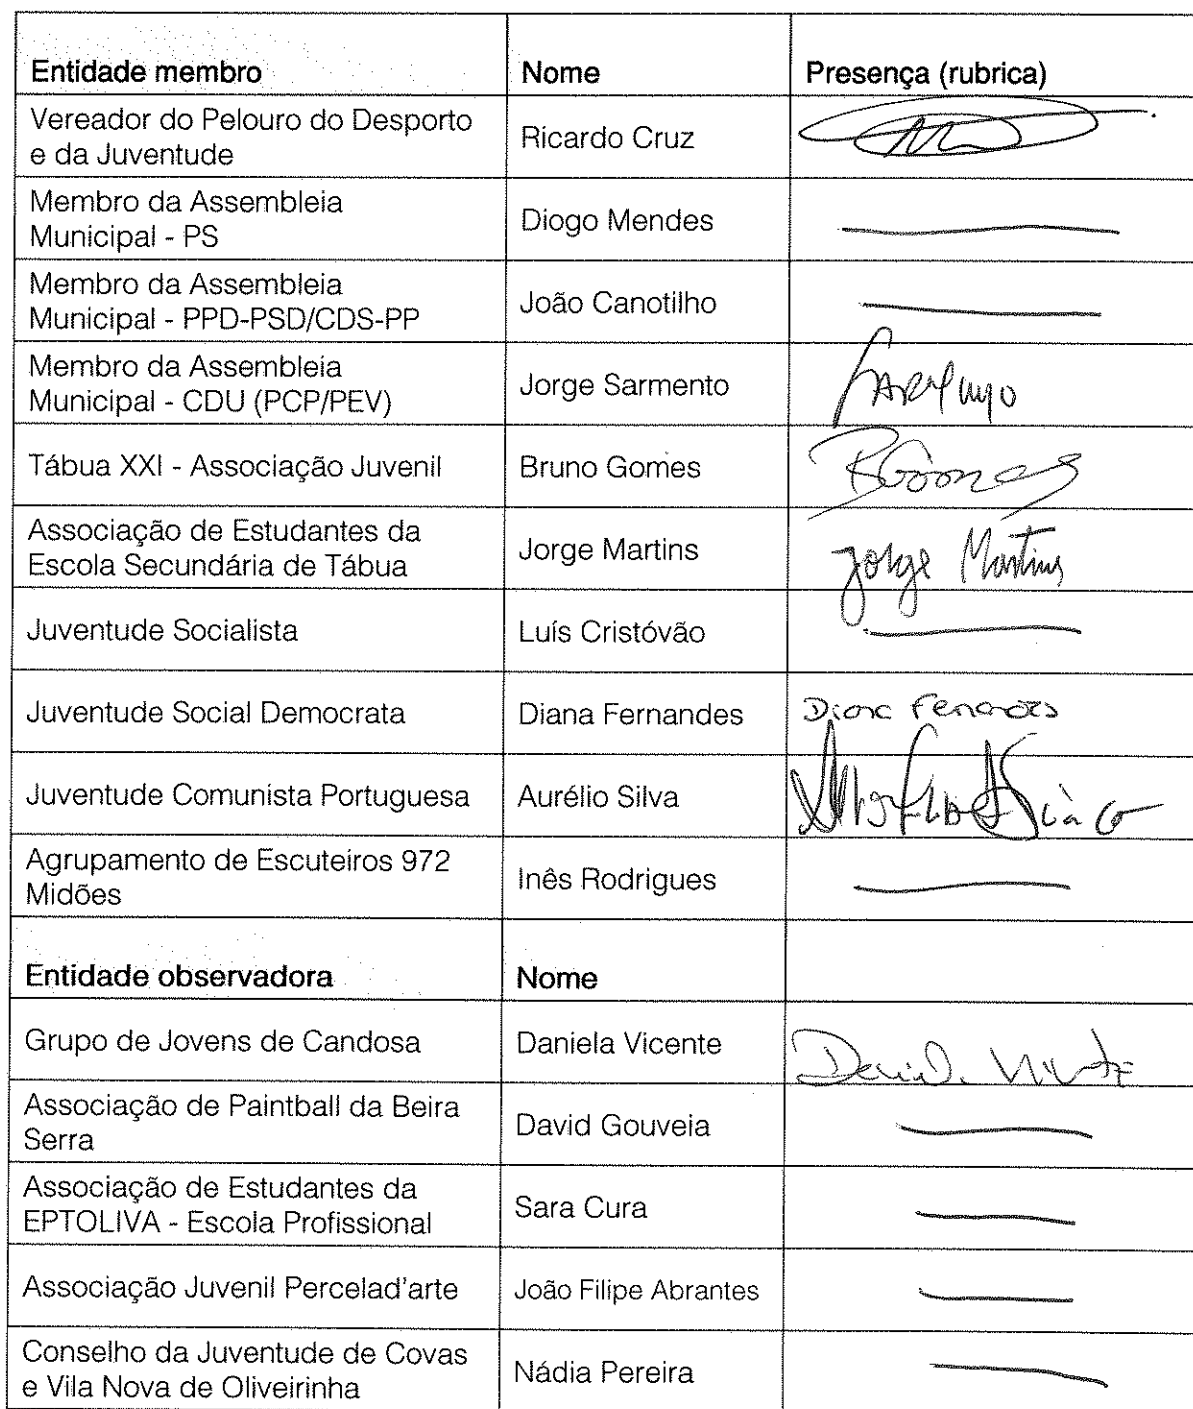 Entidade membro Nome Presença (rubrica)
Vereador do Pelouro do Desporto
e da Juventude
Ricardo Cruz
Membro da Assembleia
Municipal - PS
Diogo Mendes
Membro da Assembleia
Municipal - PPD-PSD/CDS-PP
João Canotilho
Membro da Assembleia
Municipal - CDU (PCP/PEV)
Jorge Sarmento
Tábua XXI - Associação Juvenil Bruno Gomes BGomes
Associação de Estudantes da
Escola Secundária de Tábua
Jorge Martins Jorge Martins
Juventude Socialista Luís Cristóvão
Juventude Social Democrata Diana Fernandes Diana Fernandes
Juventude Comunista Portuguesa Aurélio Silva
Agrupamento de Escuteiros 972
Midões
Inês Rodrigues
Entidade observadora Nome
Grupo de Jovens de Candosa Daniela Vicente
Associação de Paintball da Beira
Serra
David Gouveia
Associação de Estudantes da
EPTOLIVA - Escola Profissional
Sara Cura
Associação Juvenil Percelad'arte João Filipe Abrantes
Conselho da Juventude de Covas
e Vila Nova de Oliveirinha
Nádia Pereira